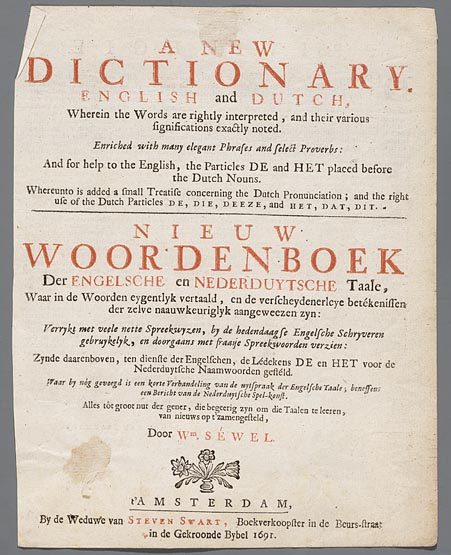 A NEW
DICTIONARY
ENGLISH and DUTCH,
Wherein the Words are rightly interpreted, and their various
significations exactly noted.
Enriched with many elegant Phrases and select Proverbs:
And for help to the English, the Particles DE and HET placed before
the Dutch Nouns.
Whereunto is added a small Treatise concerning the Dutch Pronunciation; and the right
use of the Dutch Particles DE, DIE, DEEZE, and HET, DAT, DIT.
NIEUW
WOORDENBOEK
Der ENGELSCHE en NEDERDUYTSCHE Taale,
Waar in de Woorden eygentlyk vertaald, en de verscheydenerleye betékenissen
der zelve naauwkeuriglyk aangeweezen zyn:
Verrykt met veele nette Spreekwyzen, by de hedendaagse Engelsche Schryveren
gebruykelyk, en doorgaans met fraaije Spreekwoorden verzien:
Zynde daarenboven, ten dienste der Engelschen, de Lédekens DE en HET voor de
Nederduytsche Naamwoorden gestéld.
Waar by nóg gevoegd is een korte Verhandeling van de uytspraak der Engelsche Taale; beneffens
een Bericht van de Nederduytsche Spel-konst.
Alles tót groot nut der gener, die begeerig zyn om die Taalen te leeren,
van nieuws op't zamengesteld,
Door Wm. SÉWEL.
t'AMSTERDAM,
By de Weduwe van STEVEN SWART, Boekverkoopster in de Beurs-straat
in de Gekroonde Bybel 1691.